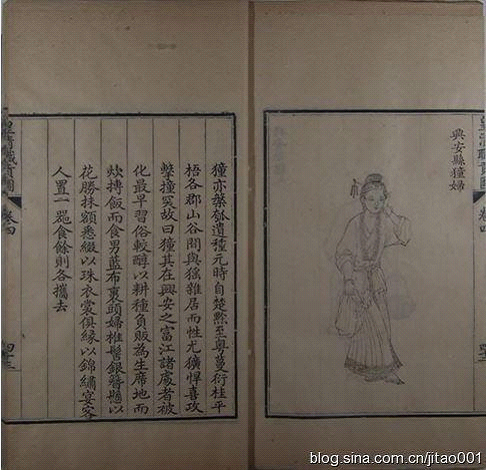 皇清職貢圖 卷四
興安縣獞婦
獞亦槃瓠遺種元時自楚黔至粵蔓衍桂平
梧各郡山谷間與猺雜居而性尤獷悍喜攻
擊撞突故曰獞其在興安之富江諸處者被
化最早習俗較醇以耕種負販為生席地而
炊摶飯而食男藍布裹頭婦椎髻銀簪懸以
花勝抹額悉綴以珠衣裳俱緣以錦繡宴客
人置一器食餘則各攜去
皇清職貢圖 卷四
blog.sina.com.cn/jitao001